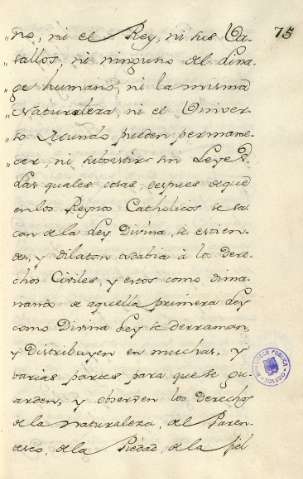 75
no, ni el Rey, ni sus Va-
sallos, ni ninguno del lina-
ge humano, ni la misma
Naturaleza, ni el Univer-
so Mundo pueden permane-
cer, ni subsistir sin Leyes.
Las quales cosas, despues de que
en los Reynos Catholicos se sa-
can de la Ley Divina, se estien-
den, y dilatan a los Dere-
chos Civiles, y estos como dima-
nando de aquella primera Ley
como Divina Ley se derraman,
y distribuyen en muchas, y
varias partes para que se gu-
arden, y observen los Derechos
de la naturaleza, del Paren-
tesco, de la Piedad, de la fiel
BIBLIOTECA PUBLICA
TOLEDO